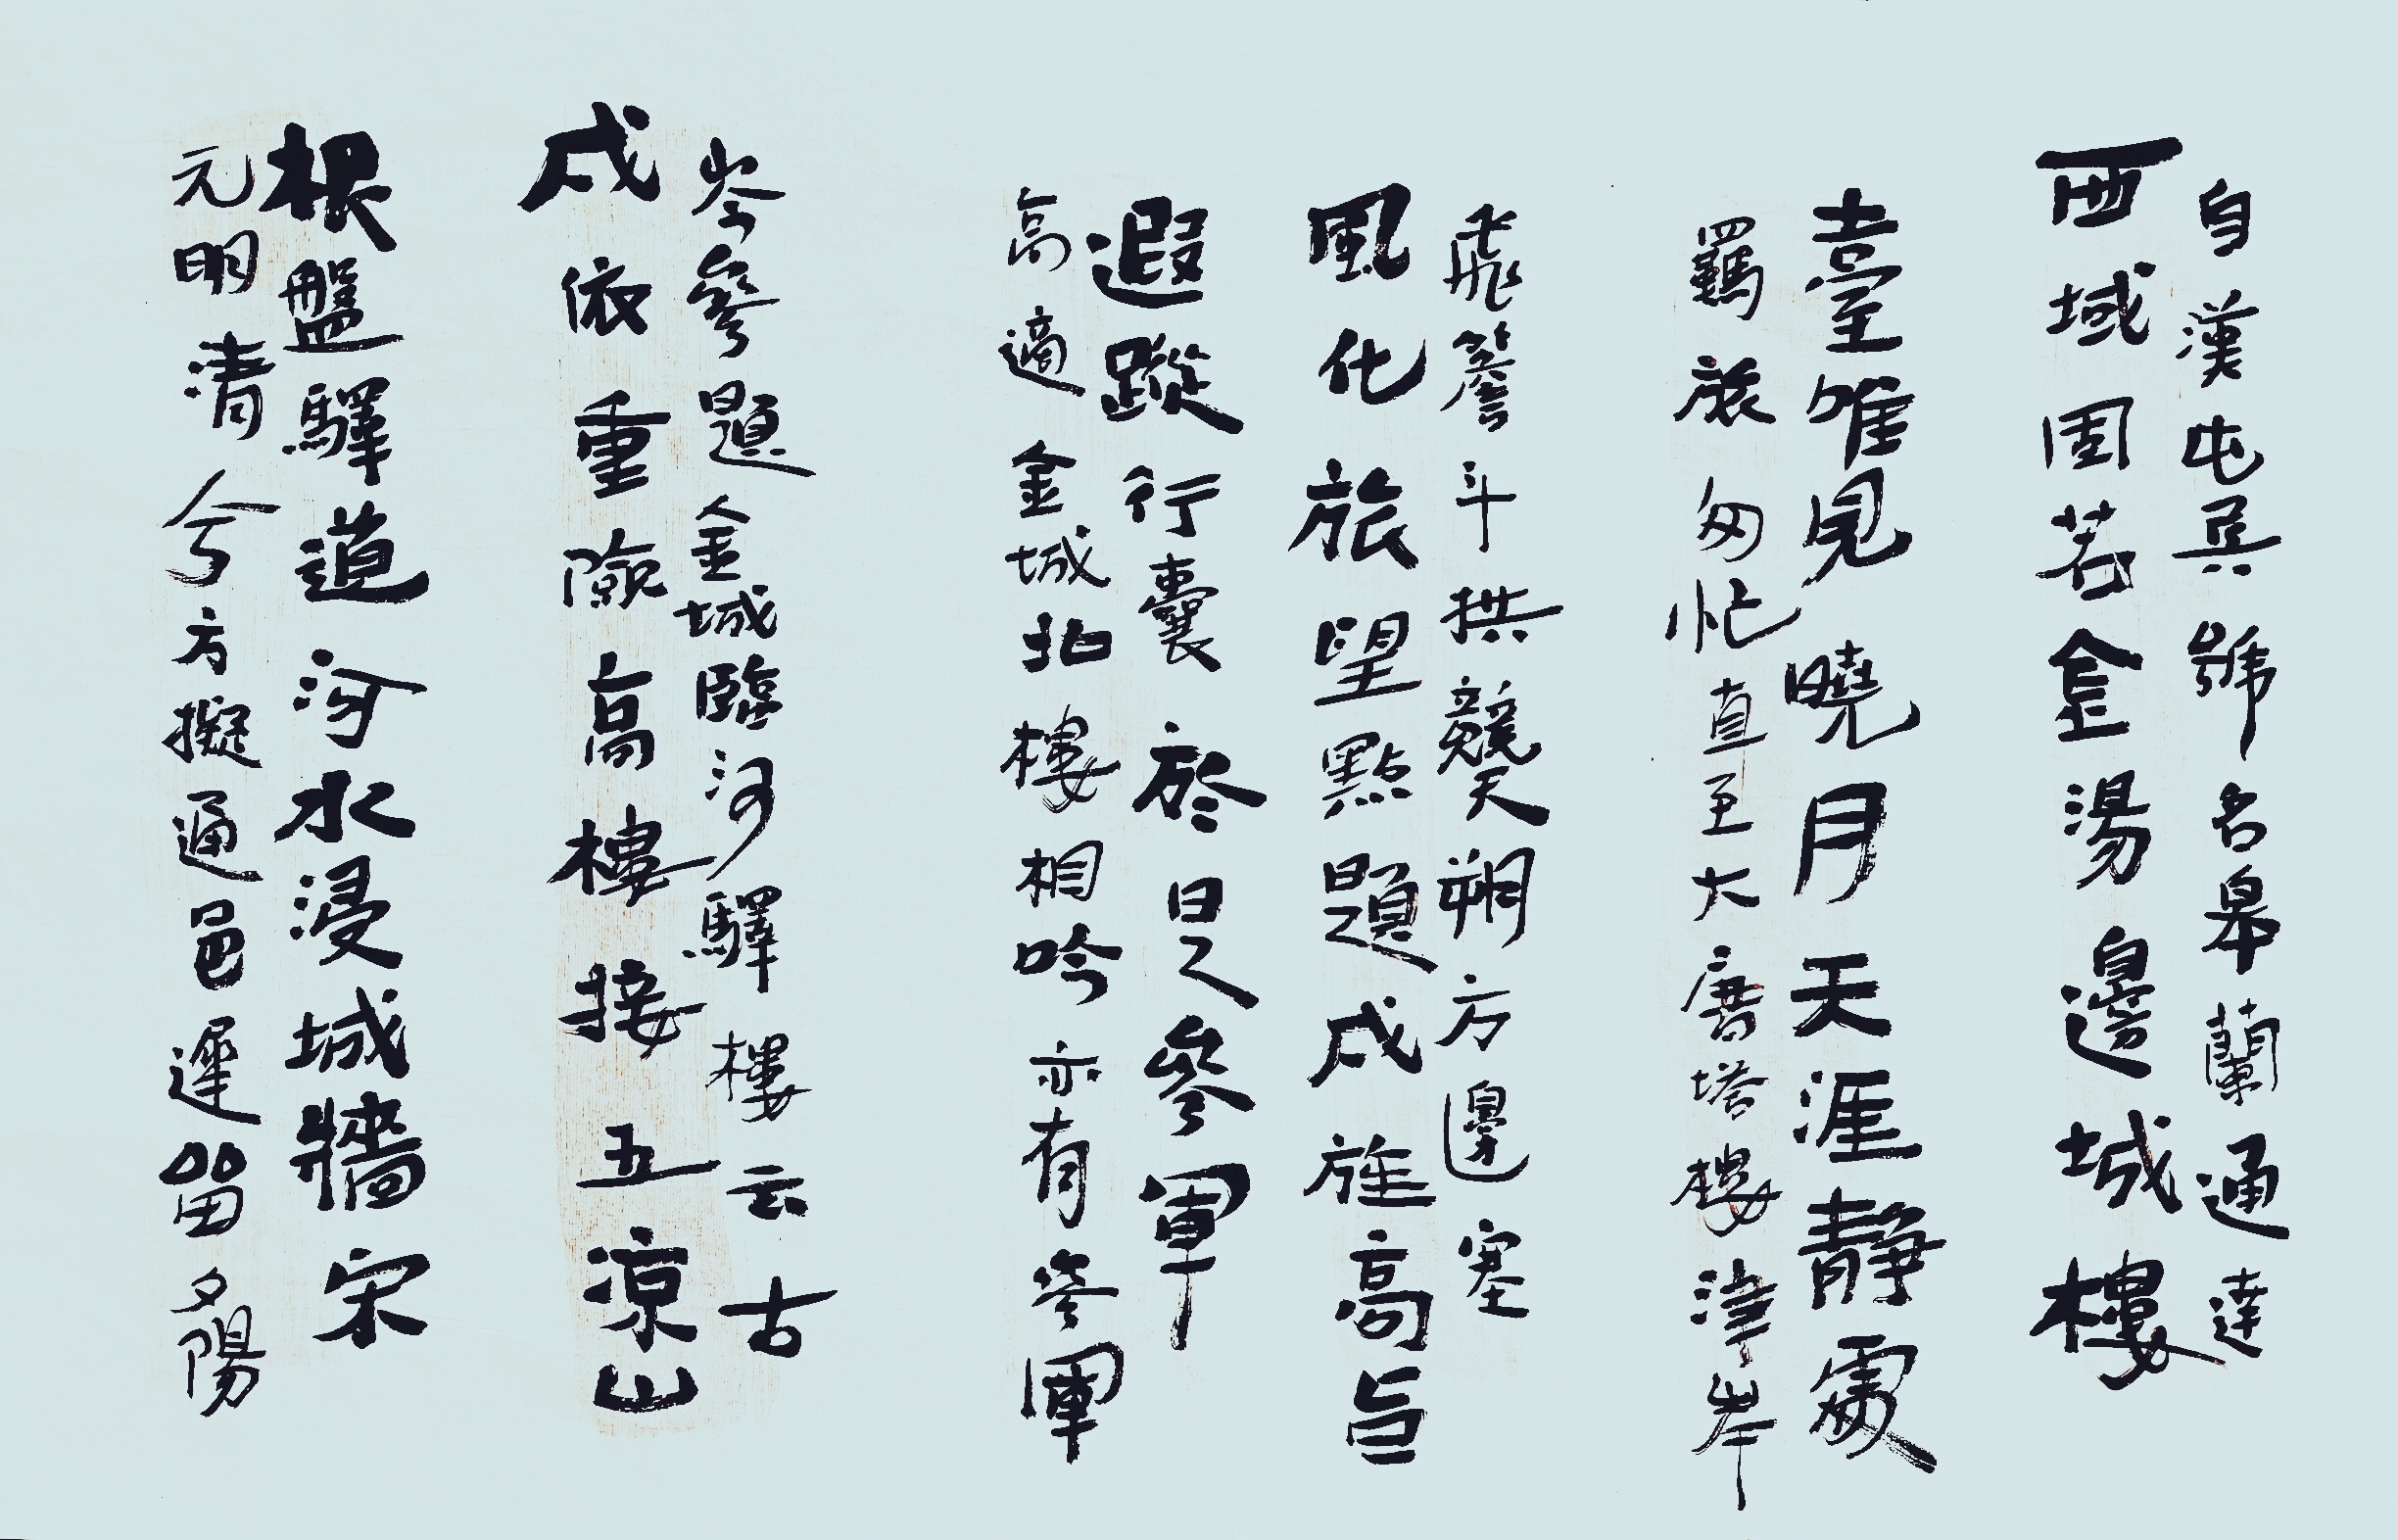 自漢屯兵號名皋蘭通達
西域固若金湯邊城樓
臺唯見曉月天涯靜處
羈旅匆忙直至大唐塔樓津岸
飛簷斗拱競天朔方邊塞
風化旅望點題戍旌高台
遐蹤行囊於是參軍
高適金城北樓相吟亦有岑軍
岑參題金城臨河驛樓云古
戍依重險高樓接五涼山
根盤驛道河水浸城牆宋
元明清兮方擬通邑遲留夕陽